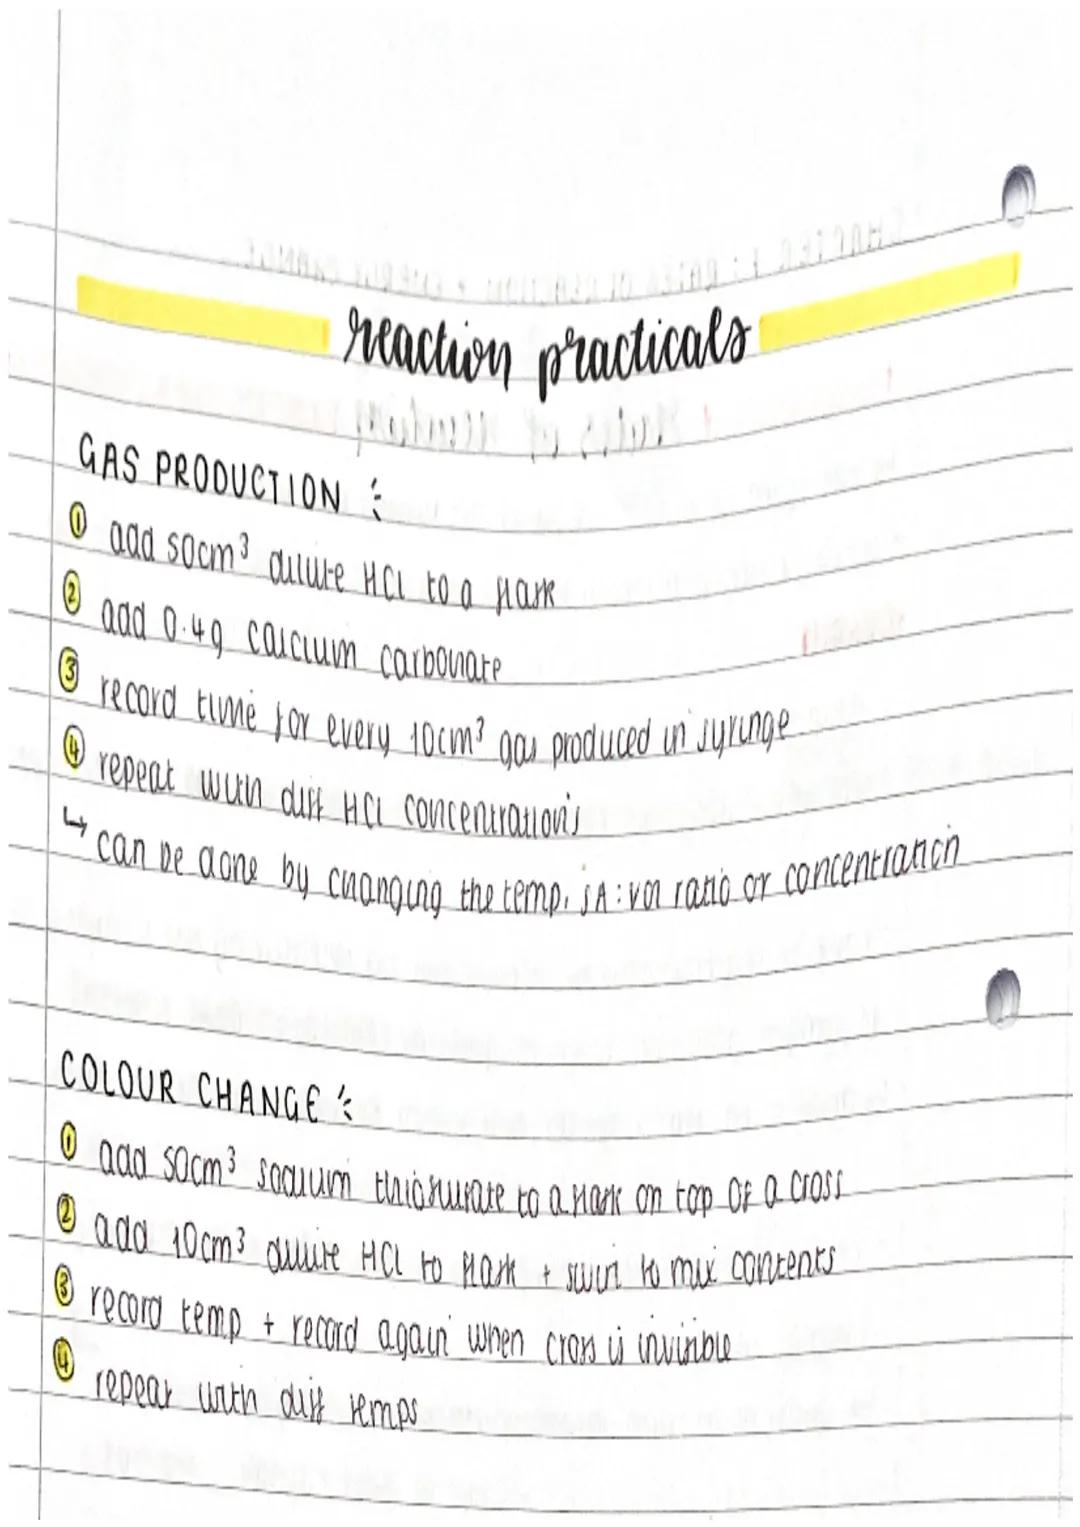 reaction practicals
GAS PRODUCTION :
① add 50cm³ dilute HCl to a flask
② add 0.4g calcium carbonate
③ record time for every 10cm³ gas produced in syringe
④ repeat with diff HCl concentrations
↳ can be done by changing the temp, SA:vol ratio or concentration
COLOUR CHANGE :
① add 50cm³ sodium thiosulfate to a flask on top of a cross
② add 10cm³ dilute HCl to flask + swirl to mix contents
③ record temp + record again when cross is invisible
④ repeat with diff temps